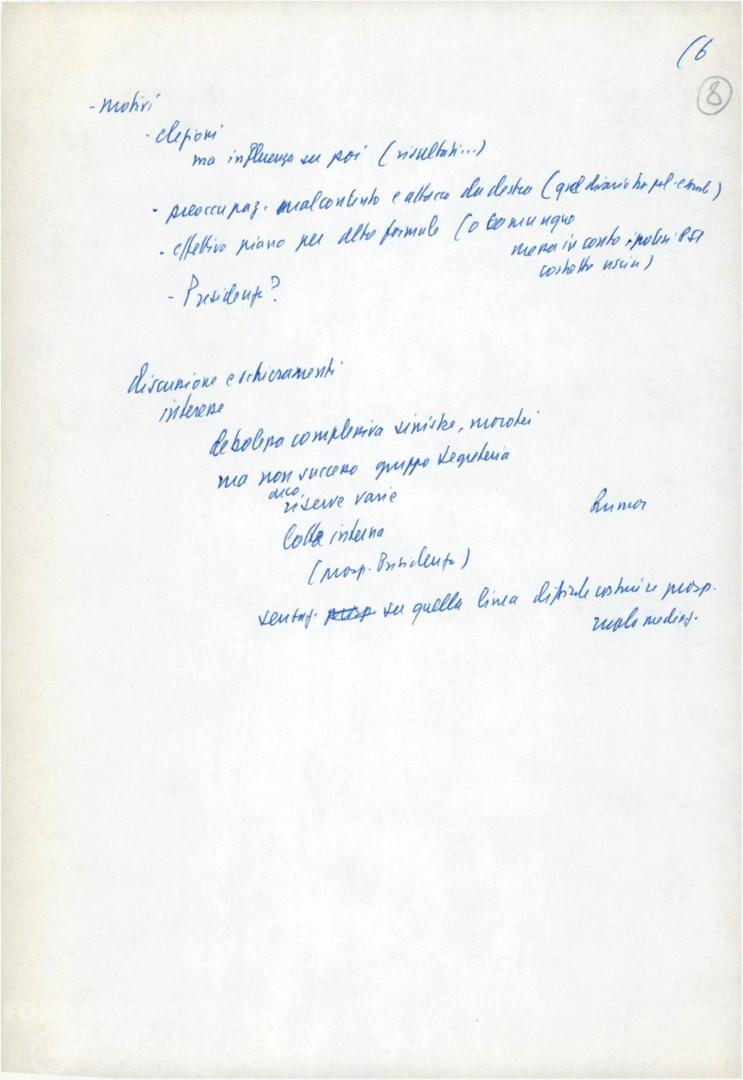 (6
8
- motivi
- elezioni
ma influenza su poi (risultati...)
- preoccupaz. malcontento e attacco da destra (
- effettivo piano per altre formule (o comunque
messa in conto ipotesi PSI
costretto uscire)
- Presidenza?
discussione e schieramenti
interesse
debolezza complessiva sinistre, morotei
ma non successo gruppo segreteria
riserve varie
Rumor
Colla interna
(prosp. Presidenza)
su quella linea difficile costruire prosp.
ruolo mediaz.